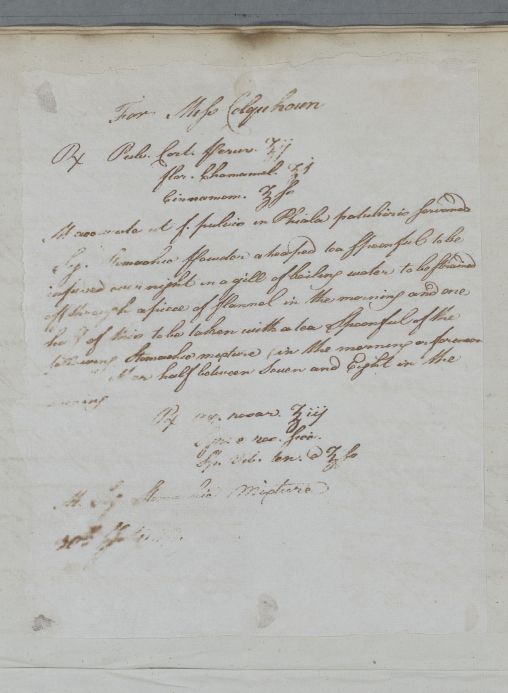 For Miss Colquhoun
Rx Pulv. Cort. Peruv. ℥ij
flor. Chamomel. ℥j
Cinnamom. ℥ss
M f. pulvis in Phiala servand
Sig. Stomachic Powder a heaped tea Spoonful to be
infused over night in a gill of boiling water to be strained
off through a piece of flannel in the morning and one
half of this to be taken with a tea Spoonful of the
following Stomachic mixture in the morning or forenoon
other half between Seven and Eight in the
evening
Rx ℥iij
℥ss
M. Sig Stomachic Mixture